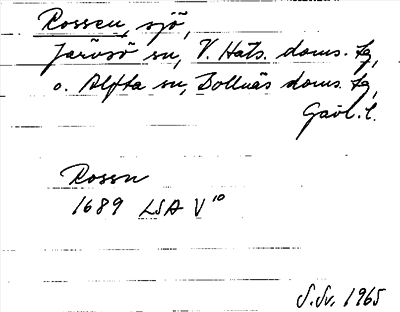 Rossen, sjö,
Järvsö sn, V. Häls. doms. fg,
o. Alfta sn, Bollnäs doms. fg,
Gävl. l.
Rossn
1689 LSA V 10
S.Sv. 1965